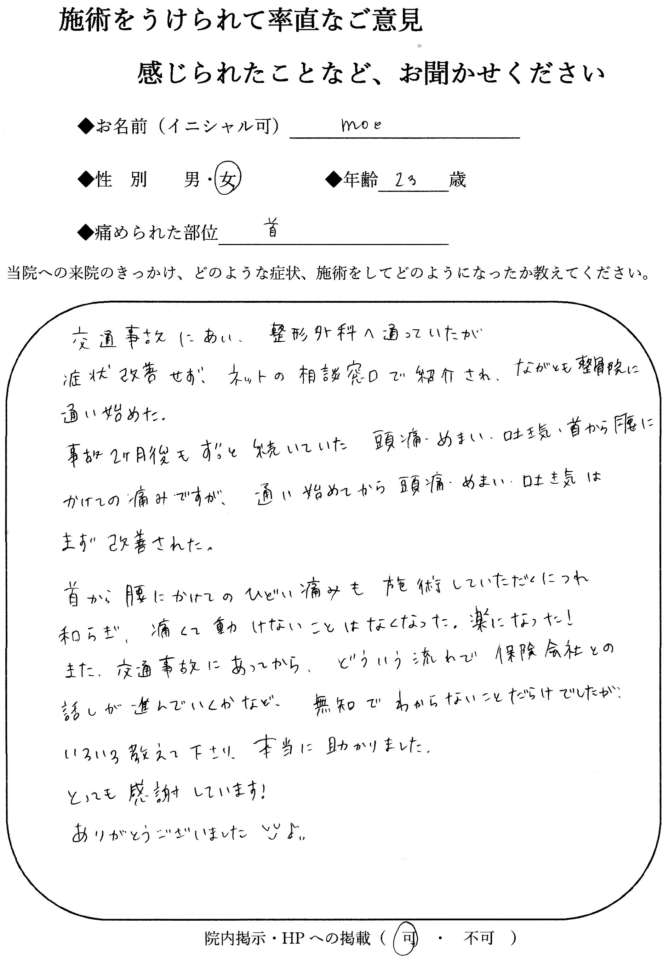 施術をうけられて率直なご意見
感じられたことなど、お聞かせください
◆お名前（イニシャル可） moe
◆性 別 男・女 ◆年齢 23 歳
◆痛められた部位 首
当院への来院のきっかけ、どのような症状、施術をしてどのようになったか教えてください。
交通事故にあい、整形外科へ通っていたが
症状改善せず、ネットの相談窓口で紹介され、ながとも整骨院に
通い始めた。
事故2ヶ月後もずっと続いていた 頭痛・めまい・吐き気・首から腰に
かけての痛みですが、通い始めてから頭痛・めまい・吐き気は
まず改善された。
首から腰にかけてのひどい痛みも 施術していただくにつれ
和らぎ、痛くて動けないことはなくなった。楽になった！
また、交通事故にあってから、どういう流れで保険会社との
話しが進んでいくかなど、無知でわからないことだらけでしたが、
いろいろ教えて下さり、本当に助かりました。
とっても感謝しています！
ありがとうございました
院内掲示・HPへの掲載（ 可 ・ 不可 ）